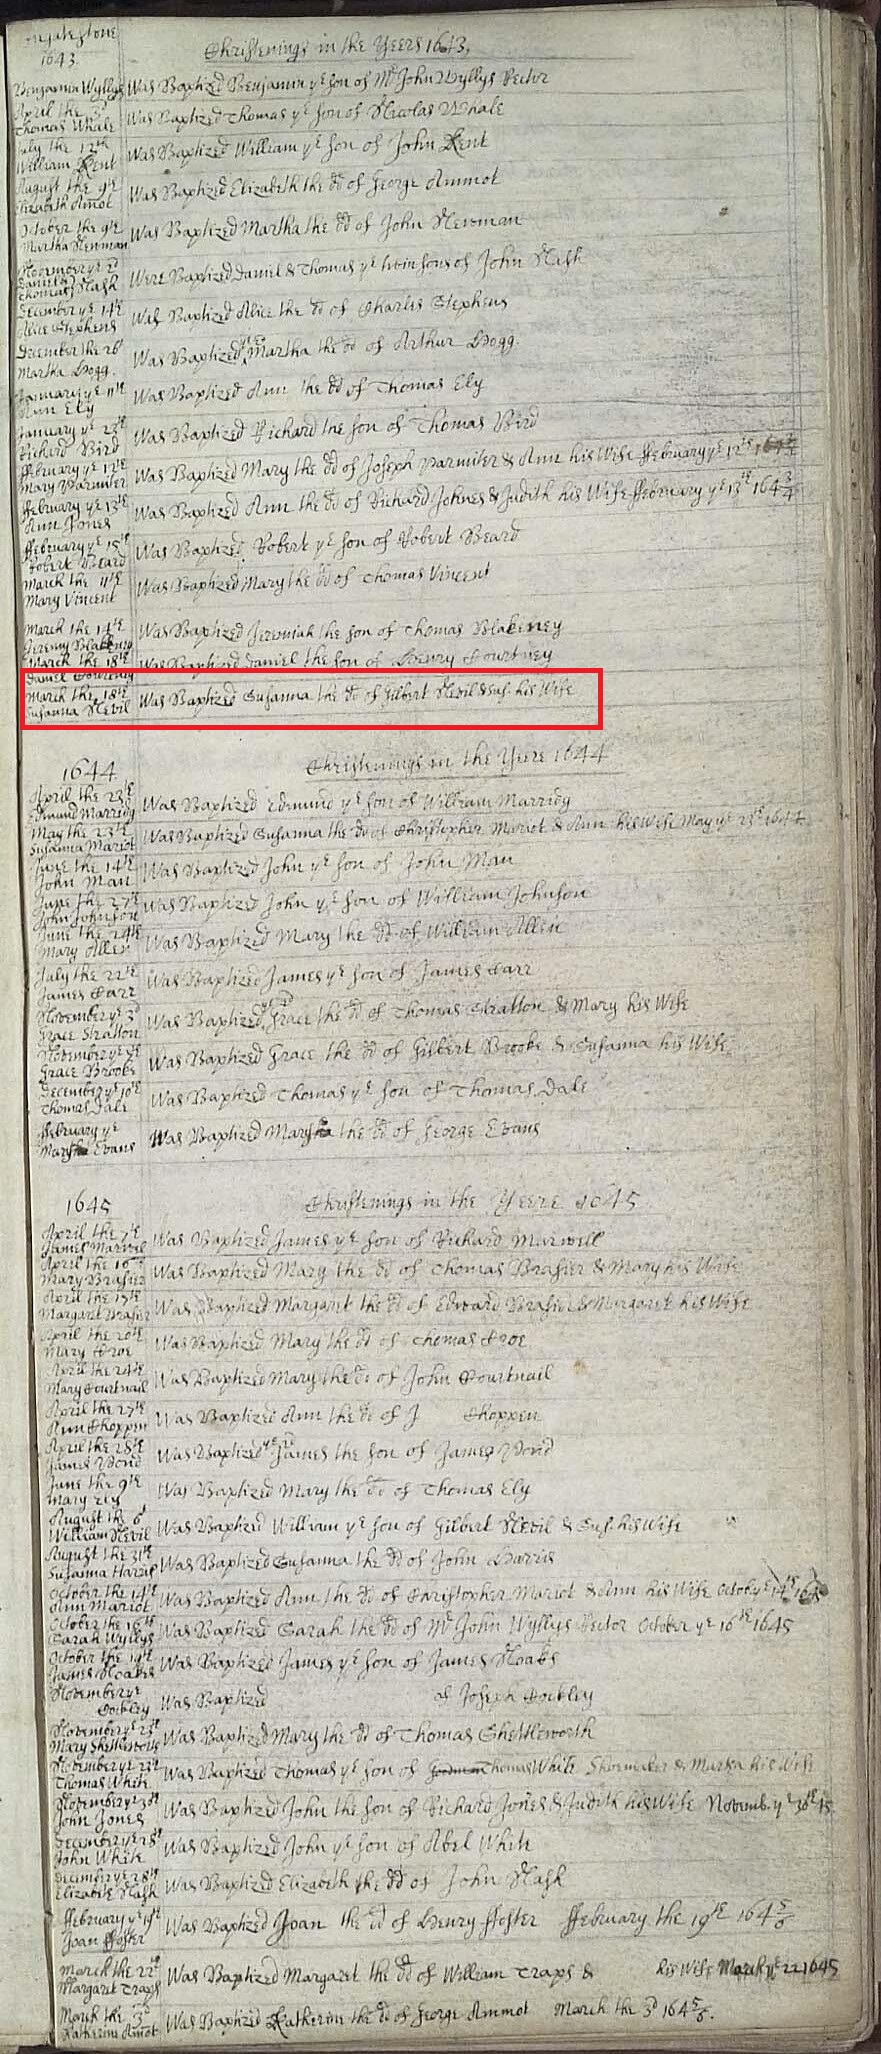 Ingatestone
1643.
Christenings in the Yeers 1643.
Benjamin Wyllys Was Baptized Benjamin yᵉ son of Mʳ John Wyllys Rector
April the 3ᵈ
Thomas Whale Was Baptized Thomas yᵉ son of Nicolas Whale
July the 12ᵗʰ
William Kent Was Baptized William yᵉ son of John Kent
August the 9ᵗʰ
Elizabeth Amot Was Baptized Elizabeth the dd of George Ammot
October the 9ᵗʰ
Martha Newman Was Baptized Martha the dd of John Newman
November yᵉ
Daniel &
Thomas Nash Were Baptized Daniel & Thomas yᵉ twin sons of John Nash
December yᵉ 14ᵗʰ
Alice Stephens Was Baptized Alice the dd of Charles Stephens
December the 26ᵗ
Martha Hogg. Was Baptized Martha the dd of Arthur Hogg.
January yᵉ 11ᵗʰ
Ann Ely Was Baptized Ann the dd of Thomas Ely
January yᵉ 23ᵗʰ
Richard Bird Was Baptized Richard the son of Thomas Bird
ffebruary yᵉ 12ᵗʰ
Mary Parmiter Was Baptized Mary the dd of Joseph Parmiter & Ann his Wife ffebruary yᵉ 12ᵗʰ 164¾
ffebruary yᵉ 13ᵗʰ
Ann Jones Was Baptized Ann the dd of Richard Johnes & Judith his Wife ffebruary yᵉ 13ᵗʰ 164¾
ffebruary yᵉ 15ᵗʰ
Robert Beard Was Baptized Robert yᵉ son of Robert Beard
March the 11ᵗʰ
Mary Vincent Was Baptized Mary the dd of Thomas Vincent
March the 14ᵗʰ
Jeremy Blakeney Was Baptized Jeremiah the son of Thomas Blakeney
March the 18ᵗʰ
Daniel Courtney Was Baptized Daniel the son of Henry Courtney
March the 18ᵗʰ
Susanna Nevil Was Baptized Susanna the dd of Gilbert Nevil & Sus. his Wife
1644
Christenings in the Yeere 1644
April the 23ᵗʰ
Edmund Marridg Was Baptized Edmund yᵉ son of William Marridg
May the 23ᵗʰ
Susanna Mariot Was Baptized Susanna the dd of Christopher Mariot & Ann his Wife May yᵉ 23ᵗʰ 1644
June the 14ᵗʰ
John Man Was Baptized John yᵉ son of John Man
June the 27ᵗʰ
John Johnson Was Baptized John yᵉ son of William Johnson
June the 24ᵗʰ
Mary Allen Was Baptized Mary the dd of William Allen
July the 22ᵗʰ
James Carr Was Baptized James yᵉ son of James Carr
November yᵉ 3ᵈ
Grace Stratton Was Baptized Grace the dd of Thomas Stratton & Mary his Wife
November yᵉ
Grace Brooke Was Baptized Grace the dd of Gilbert Brooke & Susanna his Wife
December yᵉ 10ᵗʰ
Thomas Dale Was Baptized Thomas yᵉ son of Thomas Dale
ffebruary yᵉ
Martha Evans Was Baptized Martha the dd of George Evans
1645
Christenings in the Yeere 1645
April the 7ᵗʰ
James Marwel Was Baptized James yᵉ son of Richard Marwell
April the 16ᵗʰ
Mary Brasier Was Baptized Mary the dd of Thomas Brasier & Mary his Wife
April the 17ᵗʰ
Margaret Brasier Was Baptized Margaret the dd of Edward Brasier & Margaret his Wife
April the 20ᵗʰ
Mary Croe Was Baptized Mary the dd of Thomas Croe
April the 24ᵗʰ
Mary Courtnail Was Baptized Mary the dd of John Courtnail
April the 27ᵗʰ
Ann Choppen Was Baptized Ann the dd of J Choppen
April the 28ᵗʰ
James Pond Was Baptized James the son of James Pond
June the 9ᵗʰ
Mary Ely Was Baptized Mary the dd of Thomas Ely
August the 6ᵗ
William Nevil Was Baptized William yᵉ son of Gilbert Nevil & Sus. his Wife
August the 31ᵗʰ
Susanna Harris Was Baptized Susanna the dd of John Harris
October the 14ᵗʰ
Ann Mariot Was Baptized Ann the dd of Christopher Mariot & Ann his Wife October yᵉ 14ᵗʰ 1645
October the 16ᵗʰ
Sarah Wyllys Was Baptized Sarah the dd of Mʳ John Wyllys Rector October yᵉ 16ᵗʰ 1645
October the 19ᵗʰ
James Noakes Was Baptized James yᵉ son of James Noakes
November yᵉ
Cockley Was Baptized of Joseph Cockley
November yᵉ 23ᵗʰ
Mary Shettleworth Was Baptized Mary the dd of Thomas Shettleworth
November yᵉ 23ᵗʰ
Thomas White Was Baptized Thomas yᵉ son of Thomas White Shoemaker & Martha his Wife
November yᵉ 30ᵗʰ
John Jones Was Baptized John the son of Richard Jones & Judith his Wife Novemb. yᵉ 30ᵗʰ 45
December yᵉ 28ᵗʰ
John White Was Baptized John yᵉ son of Abel White
December yᵉ 28ᵗʰ
Elizabeth Nash Was Baptized Elizabeth the dd of John Nash
ffebruary yᵉ 19ᵗʰ
Joan ffoster Was Baptized Joan the dd of Henry ffoster ffebruary the 19ᵗʰ 164⅚
March the 22ᵗʰ
Margaret Traps Was Baptized Margaret the dd of William Traps & his Wife March yᵉ 22 1645
March the 3ᵈ
Katherine Amot Was Baptized Katherine the dd of George Ammot March the 3ᵈ 164⅚.